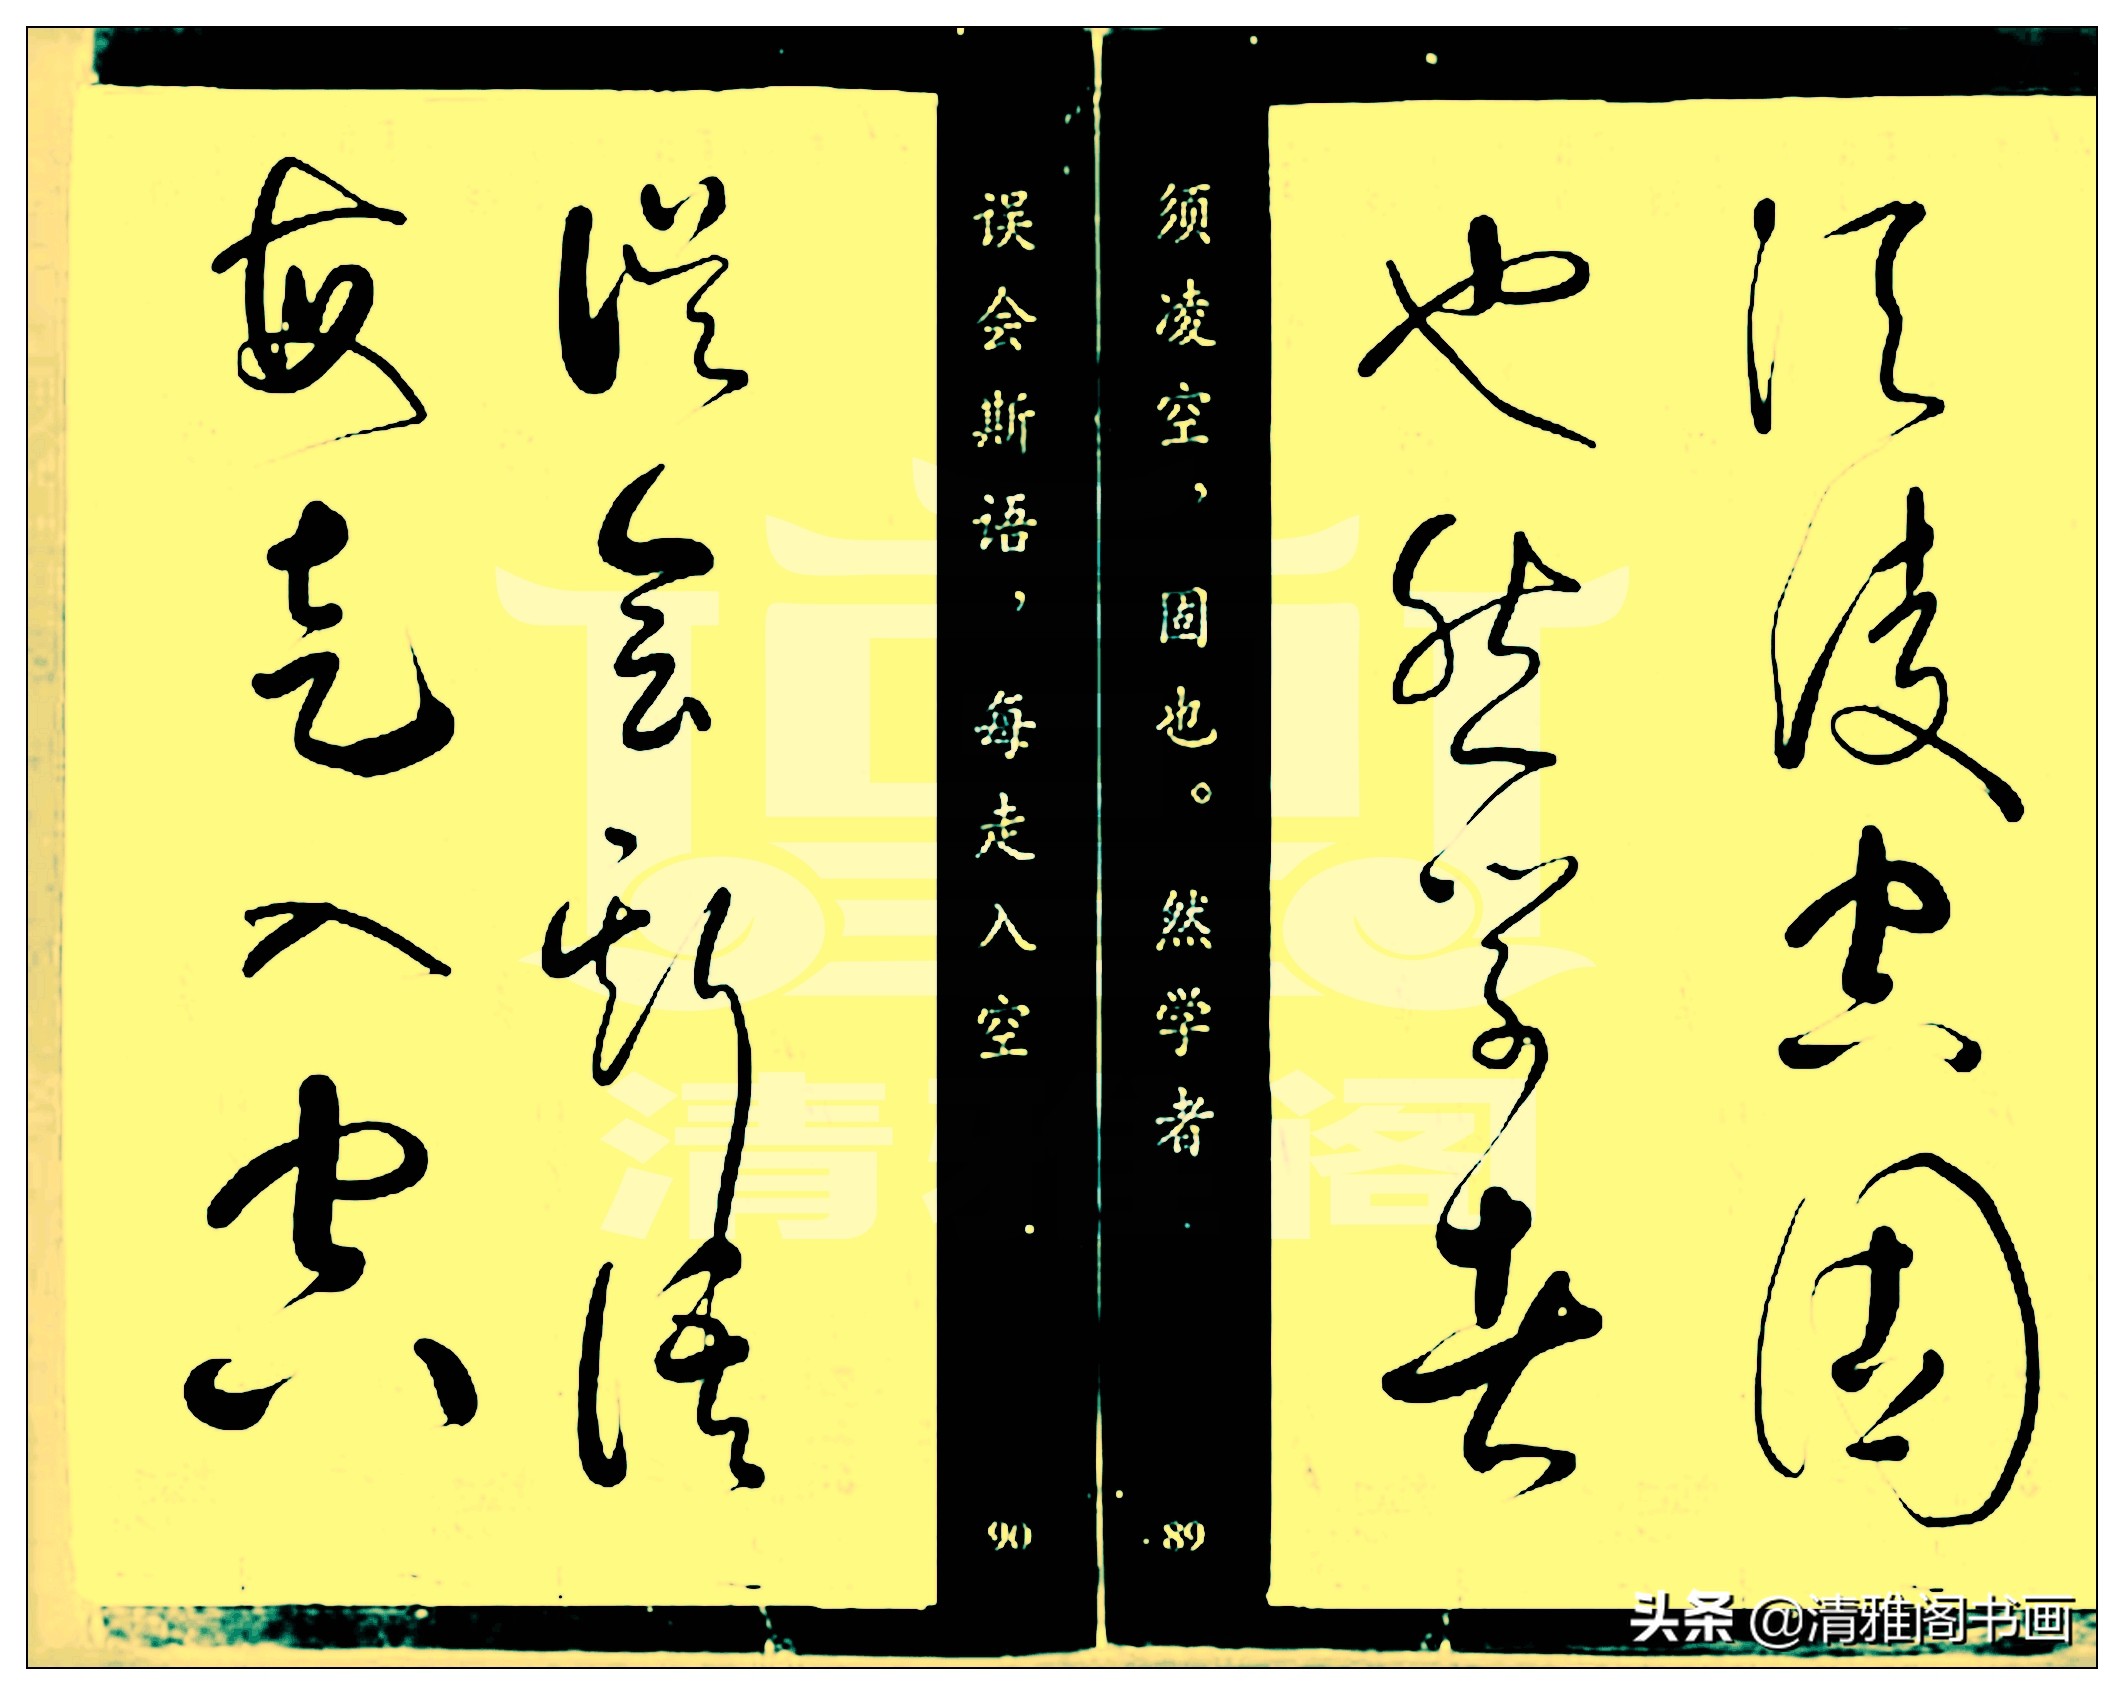 须凌空固
也然学者
须凌空，固也。然学者
89
误会斯语
每走入空
误会斯语，每走入空
90
清雅阁
头条 @清雅阁书画